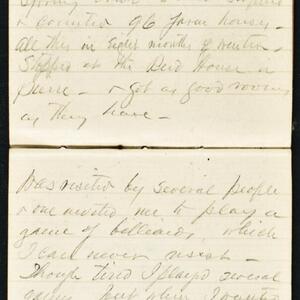 & counted 96 farm houses -
All this in eight months of winter -
Stopped at the Bird House in
Pierre - & got as good rooms
as they have -
Was visited by several people
& one invited me to play a
game of billiards, which
I can never resist -
Though tired I played several
games, but when I